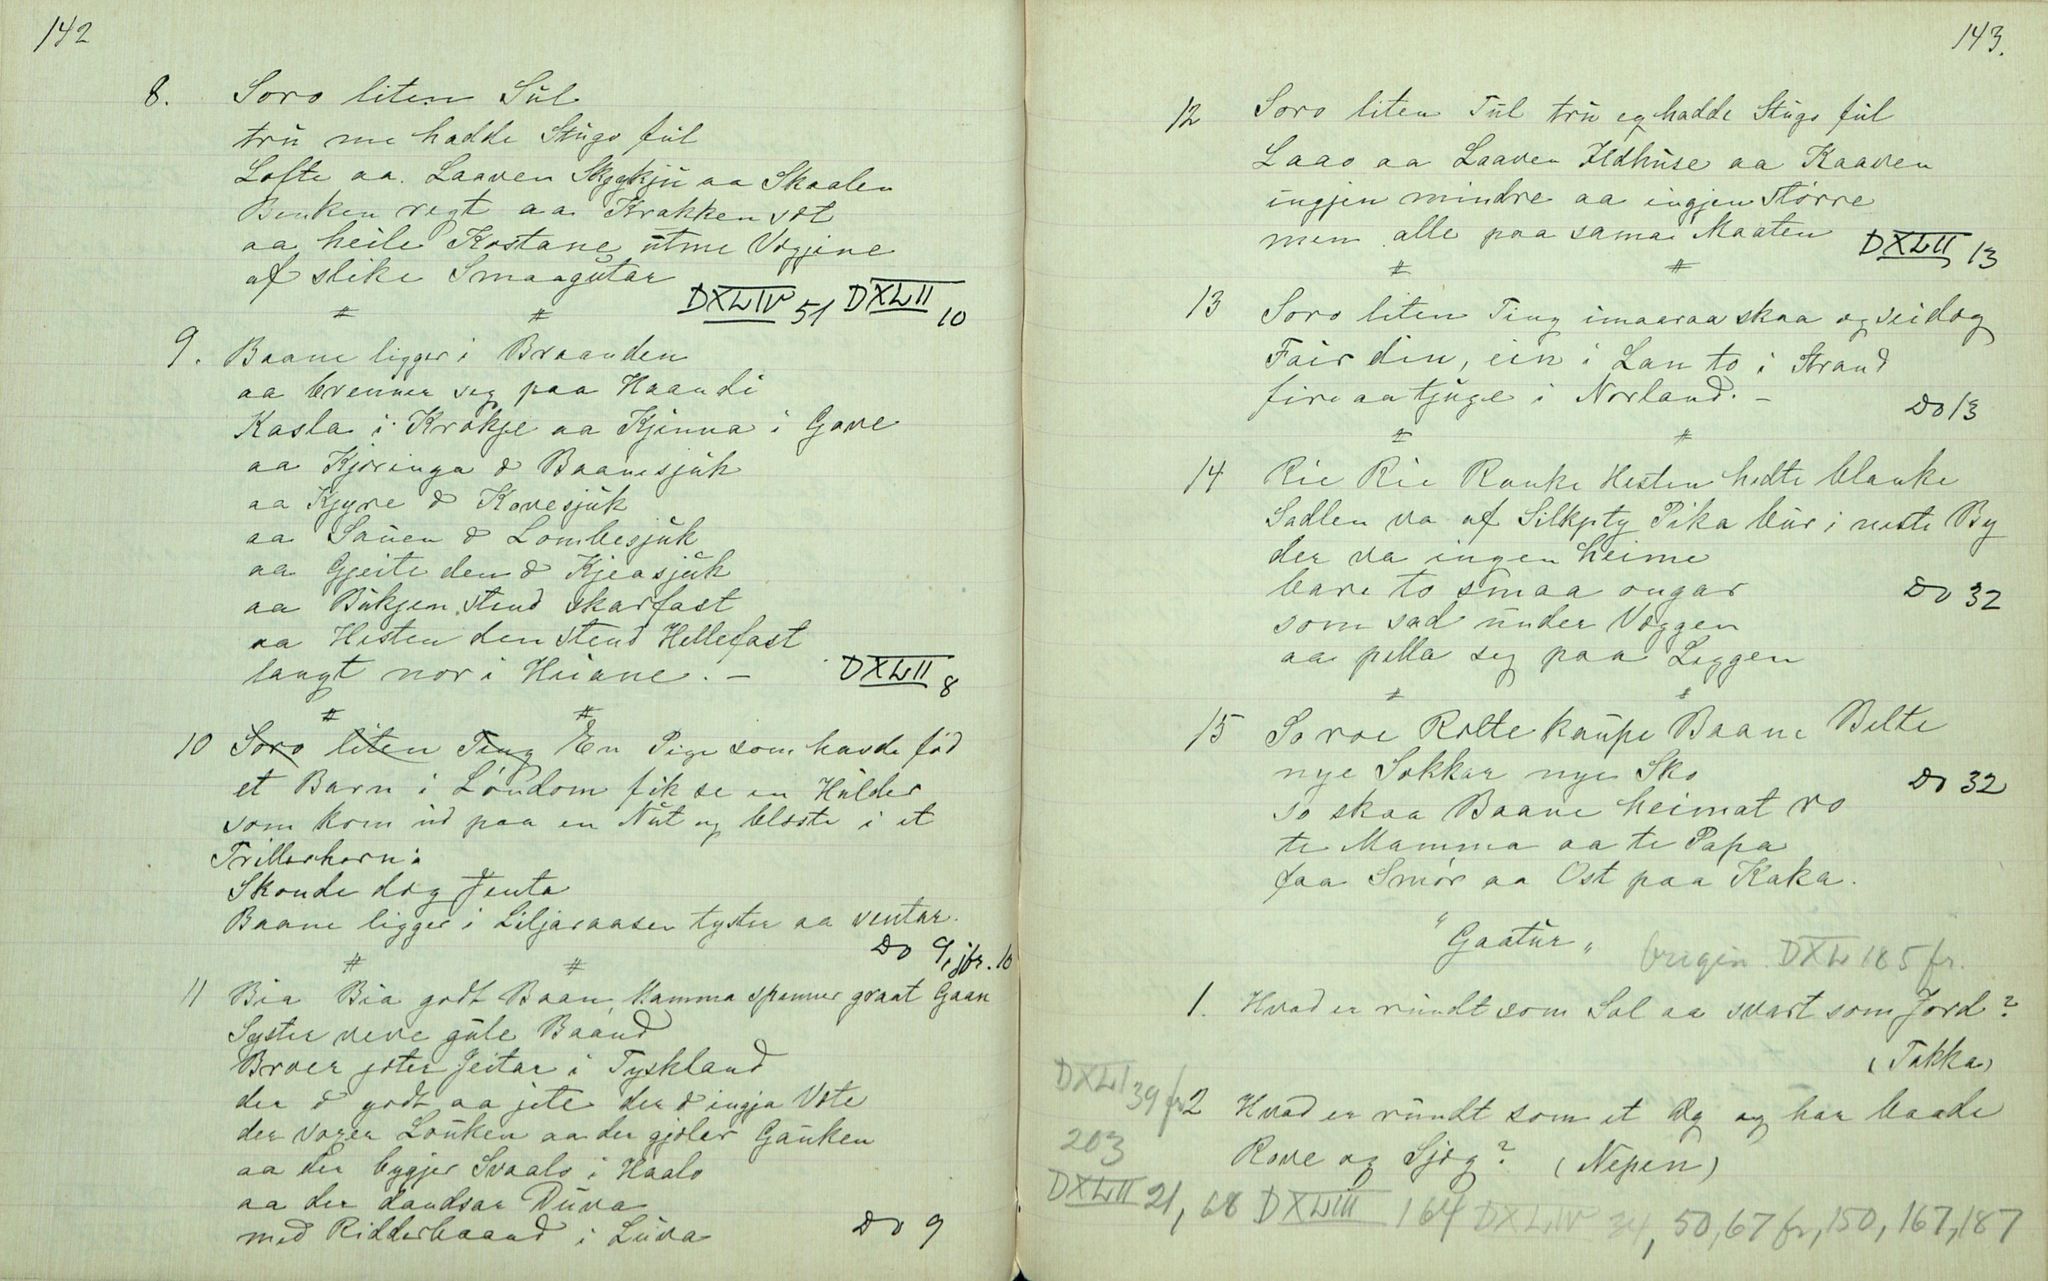 142
8. Soro liten Sul
tru me hadde Stugo ful
Lofte aa Laaven Skykju aa Skaalen
Benken regt aa Krakken sæt
aa heile Kostane utme Væggine
af slike Smaagutar
DXLIV 51 DXLII 10
9. Baane ligger i Braanden
aa brenner seg paa Haandi
Kasla i Krokje aa Kjinna i Gove
aa Kjæringa æ Baanesjuk
aa Kjyre æ Kovesjuk
aa Sauen æ Lombesjuk
aa Gjeite den æ Kjeasjuk
aa Bukjen stend skarfast
aa Hesten den stend Hellefast
langt nor i Heiane. –
DXLII 8
10 Soro liten Ting En Pige som havde fød
et Barn i Løndom fik se en Hulder
som kom ud paa en Nut og blæste i et
Trillarhorn:
Skonde dæg Jenta
Baane ligger i Liljaraasen tyster aa ventar.
Do 9, jfr. 10
11 Bia Bia godt Baan, Mamma spinner graat Gaan
Syster veve gule Baand
Broer jæter Jeitar i Tyskland
der æ godt aa jæte der æ ingja Væte
der voxer Louken aa der gjæler Gauken
aa der bygjer Svaalo i Haalo
aa der dandsar Duva
med Ridderbaand i Luva
Do 9
143.
12 Soro liten Tul tru eg hadde Stugo ful
Laao aa Laaven Ildhuse aa Kaaven
ingjen mindre aa ingjen større
men alle paa sama Maaten
DXLII 13
13 Soro liten Ting imaaraa skaa eg vei dæg
Fair din, ein i Lan to i Strand
fire aa tjuge i Norland. –
Do 13
14 Rie Rie Ranke Hesten hedte blanke
Sadlen va af Silkjety Pika bur i neste By
der va ingen heime
bare to smaa ongar
som sad under Væggen
aa pilla seg paa Leggen
Do 32
15 So roe Rolte kaupe Baane Belte
nye Sokkar nye Sko
so skaa Baane heimat ro
te Mamma aa te Papa
faa Smør aa Ost paa Kaka.
Do 32
"Gaatur"
DXL 185 fr.
1. Hvad er rundt som Sol aa svart som Jord?
(Takka)
2 Hvad er rundt som et Æg og har baade
Rove og Sjæg? (Nepen)
DXLI 39 fr
203
DXLII 21, 68 DXLIII 164 DXLIV 34, 50, 67 fr, 150, 167, 187